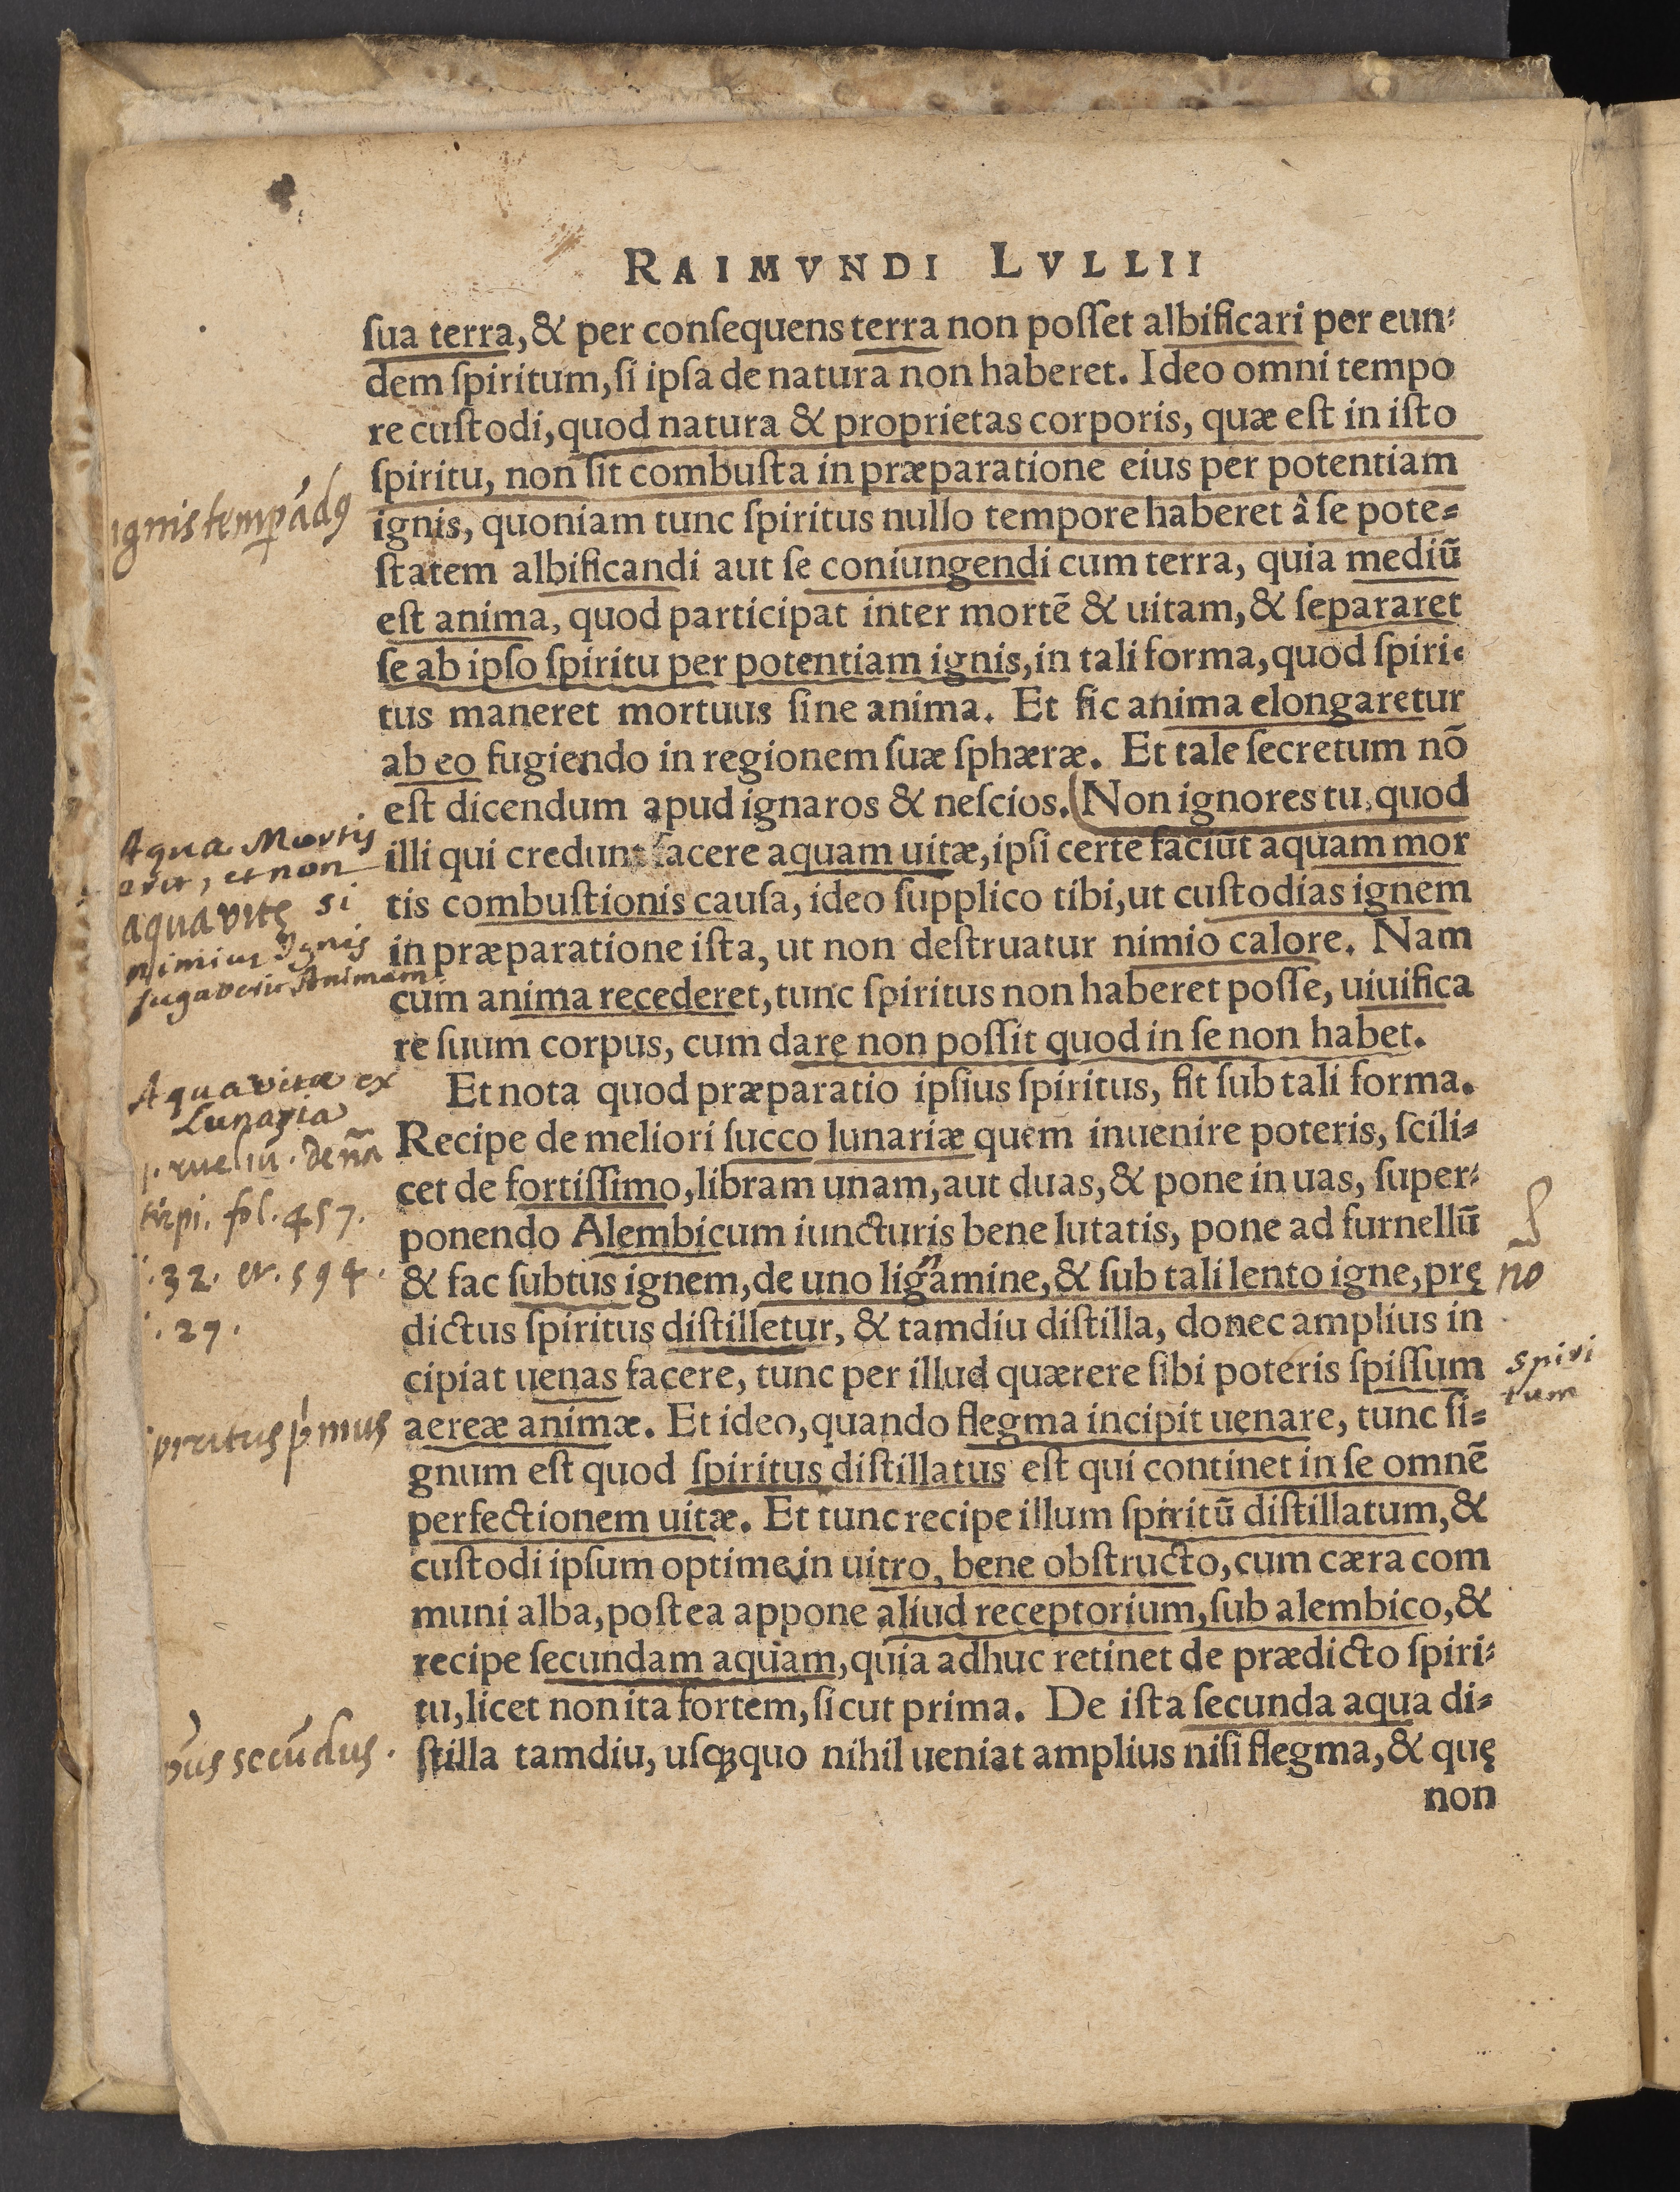 RAIMVNDI LVLLII
ſua terra, & per conſequens terra non poſſet albificari per eun-
dem ſpiritum, ſi ipſa de natura non haberet. Ideo omni tempo
re cuſtodi, quod natura & proprietas corporis, quæ eſt in iſto
ſpiritu, non ſit combuſta in præparatione eius per potentiam
ignis, quoniam tunc ſpiritus nullo tempore haberet â ſe pote-
ſtatem albificandi aut ſe coniungendi cum terra, quia mediū
eſt anima, quod participat inter mortē & uitam, & ſepararet
ſe ab ipſo ſpiritu per potentiam ignis, in tali forma, quod ſpiri-
tus maneret mortuus ſine anima. Et ſic anima elongaretur
ab eo fugiendo in regionem ſuæ ſphæræ. Et tale ſecretum nō
eſt dicendum apud ignaros & neſcios. (Non ignores tu, quod
illi qui credunt facere aquam uitæ, ipſi certe faciūt aquam mor
tis combuſtionis cauſa, ideo ſupplico tibi, ut cuſtodias ignem
in præparatione iſta, ut non deſtruatur nimio calore. Nam
cum anima recederet, tunc ſpiritus non haberet poſſe, uiuifica
re ſuum corpus, cum dare non poſſit quod in ſe non habet.
Et nota quod præparatio ipſius ſpiritus, fit ſub tali forma.
Recipe de meliori ſucco lunariæ quem inuenire poteris, ſcili-
cet de fortiſſimo, libram unam, aut duas, & pone in uas, ſuper-
ponendo Alembicum iuncturis bene lutatis, pone ad furnellū
& fac ſubtus ignem, de uno ligamine, & ſub tali lento igne, prę
dictus ſpiritus diſtilletur, & tamdiu diſtilla, donec amplius in
cipiat uenas facere, tunc per illud quærere ſibi poteris ſpiſſum
aereæ animæ. Et ideo, quando flegma incipit uenare, tunc ſi-
gnum eſt quod ſpiritus diſtillatus eſt qui continet in ſe omnē
perfectionem uitæ. Et tunc recipe illum ſpiritū diſtillatum, &
cuſtodi ipſum optime in uitro, bene obſtructo, cum cæra com
muni alba, poſtea appone aliud receptorium, ſub alembico, &
recipe ſecundam aquam, quia adhuc retinet de prædicto ſpiri-
tu, licet non ita fortem, ſicut prima. De iſta ſecunda aqua di-
ſtilla tamdiu, uſq́ꝫ quo nihil ueniat amplius niſi flegma, & quę
non
ignis temp̱ādꝰ
Aqua Mortis
erit, et non
aqua vitę si
nimius Ignis
fugaverit Animam
Aqua vitæ ex
Lunaria
rueliū. de nā
stirpi. fol. 457.
.32. et. 594.
.27.
no
spiri
tum
spiritus ṕmus
secūdus.